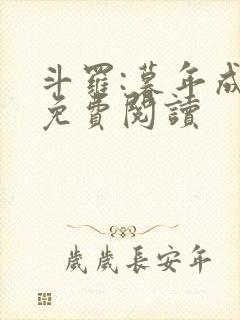 斗羅:暮年成
免費閱讀
歲歲長安年